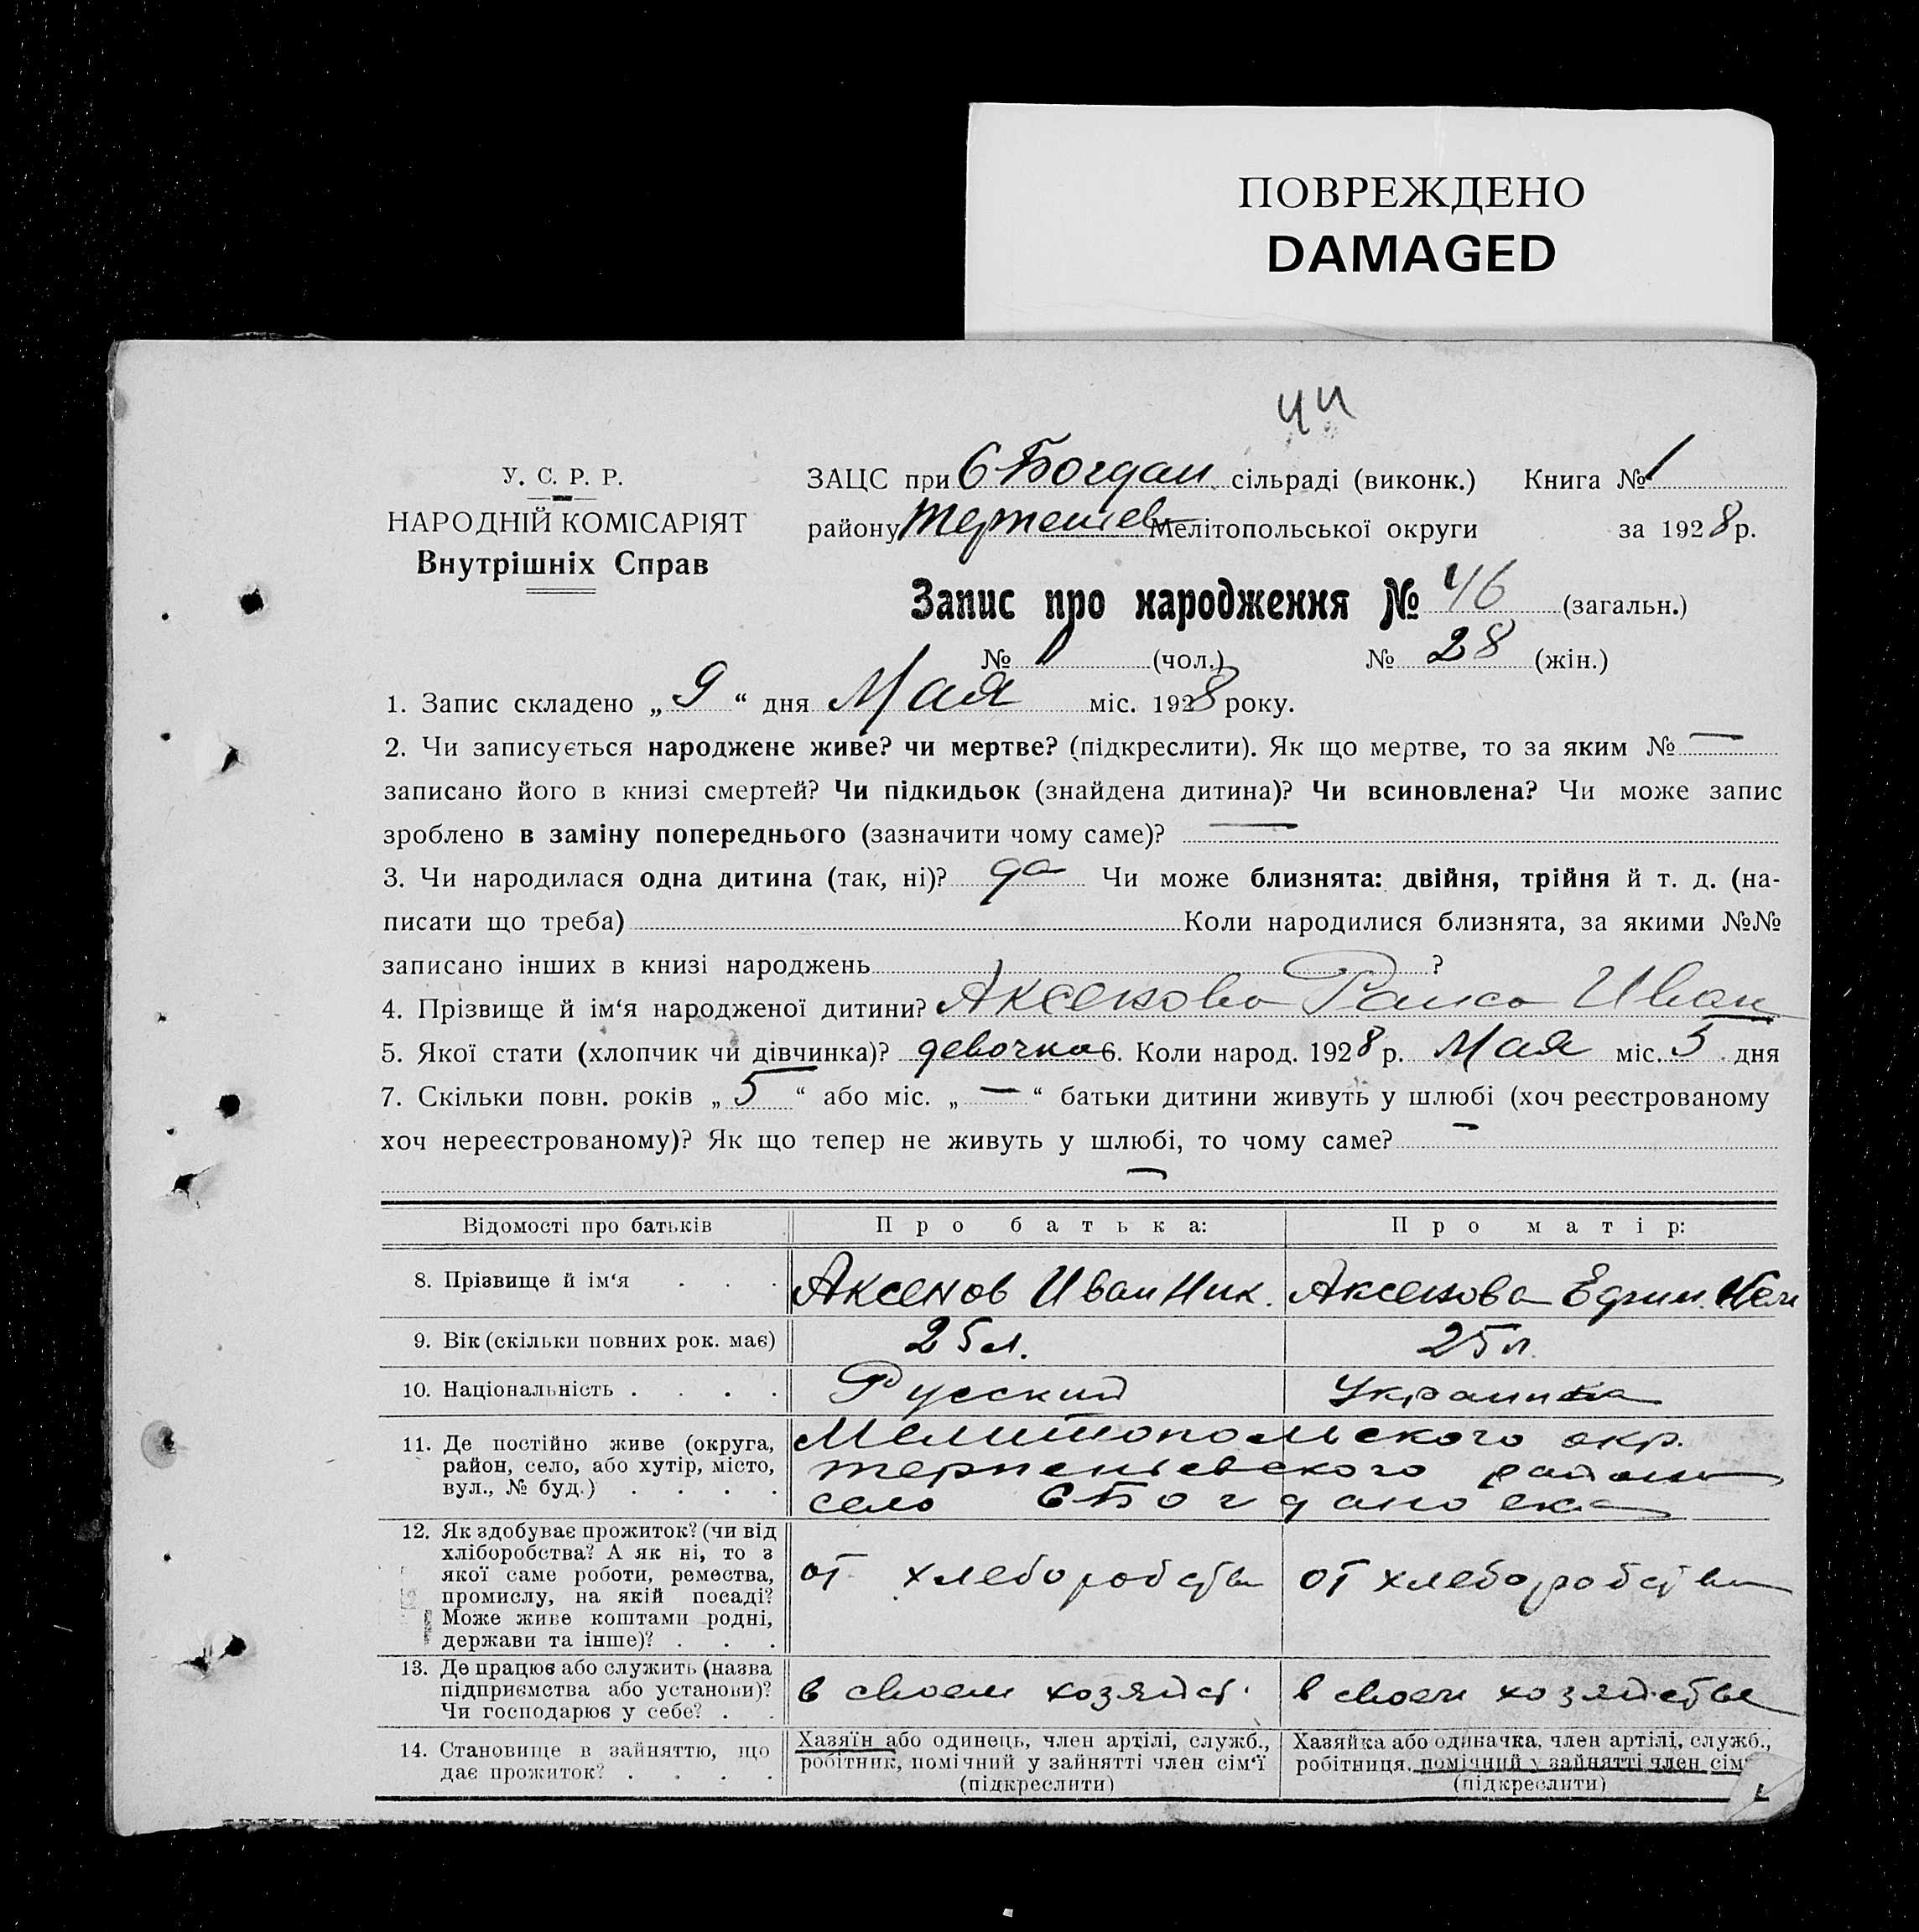 ПОВРЕЖДЕНО
DAMAGED
44
У. С. Р. Р.
НАРОДНІЙ КОМІСАРІЯТ
Внутрішніх Справ
ЗАЦС при С Богдан сільраді (виконк.) Книга № 1
району Терпениев Мелітопольської округи за 1928 р.
Запис про народження № 46 (загальн.)
№ (чол.) № 28 (жін.)
1. Запис складено „ 9 “ дня Мая міс. 1928 року.
2. Чи записується народжене живе? чи мертве? (підкреслити). Як що мертве, то за яким № —
записано його в книзі смертей? Чи підкидьок (знайдена дитина)? Чи всиновлена? Чи може запис
зроблено в заміну попереднього (зазначити чому саме)? —
3. Чи народилася одна дитина (так, ні)? да Чи може близнята: двійня, трійня й т. д. (на-
писати що треба) Коли народилися близнята, за якими №№
записано інших в книзі народжень ?
4. Прізвище й ім‘я народженої дитини? Аксенова Раиса Иван
5. Якої стати (хлопчик чи дівчинка)? девочка 6. Коли народ. 1928 р. Мая міс. 5 дня
7. Скільки повн. років „ 5 “ або міс. „ — “ батьки дитини живуть у шлюбі (хоч реєстрованому
хоч нереєстрованому)? Як що тепер не живуть у шлюбі, то чому саме? —
—
Відомості про батьків Про батька: Про матір:
8. Прізвище й ім‘я . . . Аксенов Иван Ник. Аксенова Ефим.
9. Вік (скільки повних рок. має) 25 л. 25 л.
10. Національність . . . . Русский Украинка
11. Де постійно живе (округа, район, село, або хутір, місто, вул., № буд.) . . . .
Мелитопольского окр.
терпениевского района
село С Богдановка
12. Як здобуває прожиток? (чи від хліборобства? А як ні, то з якої саме роботи, ремества, промислу, на якій посаді? Може живе коштами родні, держави та інше)? . . .
от хлеборобства от хлеборобства
13. Де працює або служить (назва підприємства або установи)? Чи господарює у себе? . .
в своем хозяйст. в своем хозяйстве
14. Становище в зайняттю, що дає прожиток? . . . .
Хазяїн або одинець, член артілі, служб., робітник, помічний у зайнятті член сім‘ї (підкреслити)
Хазяйка або одиначка, член артілі, служб., робітниця, помічний у зайнятті член сім‘ (підкреслити)